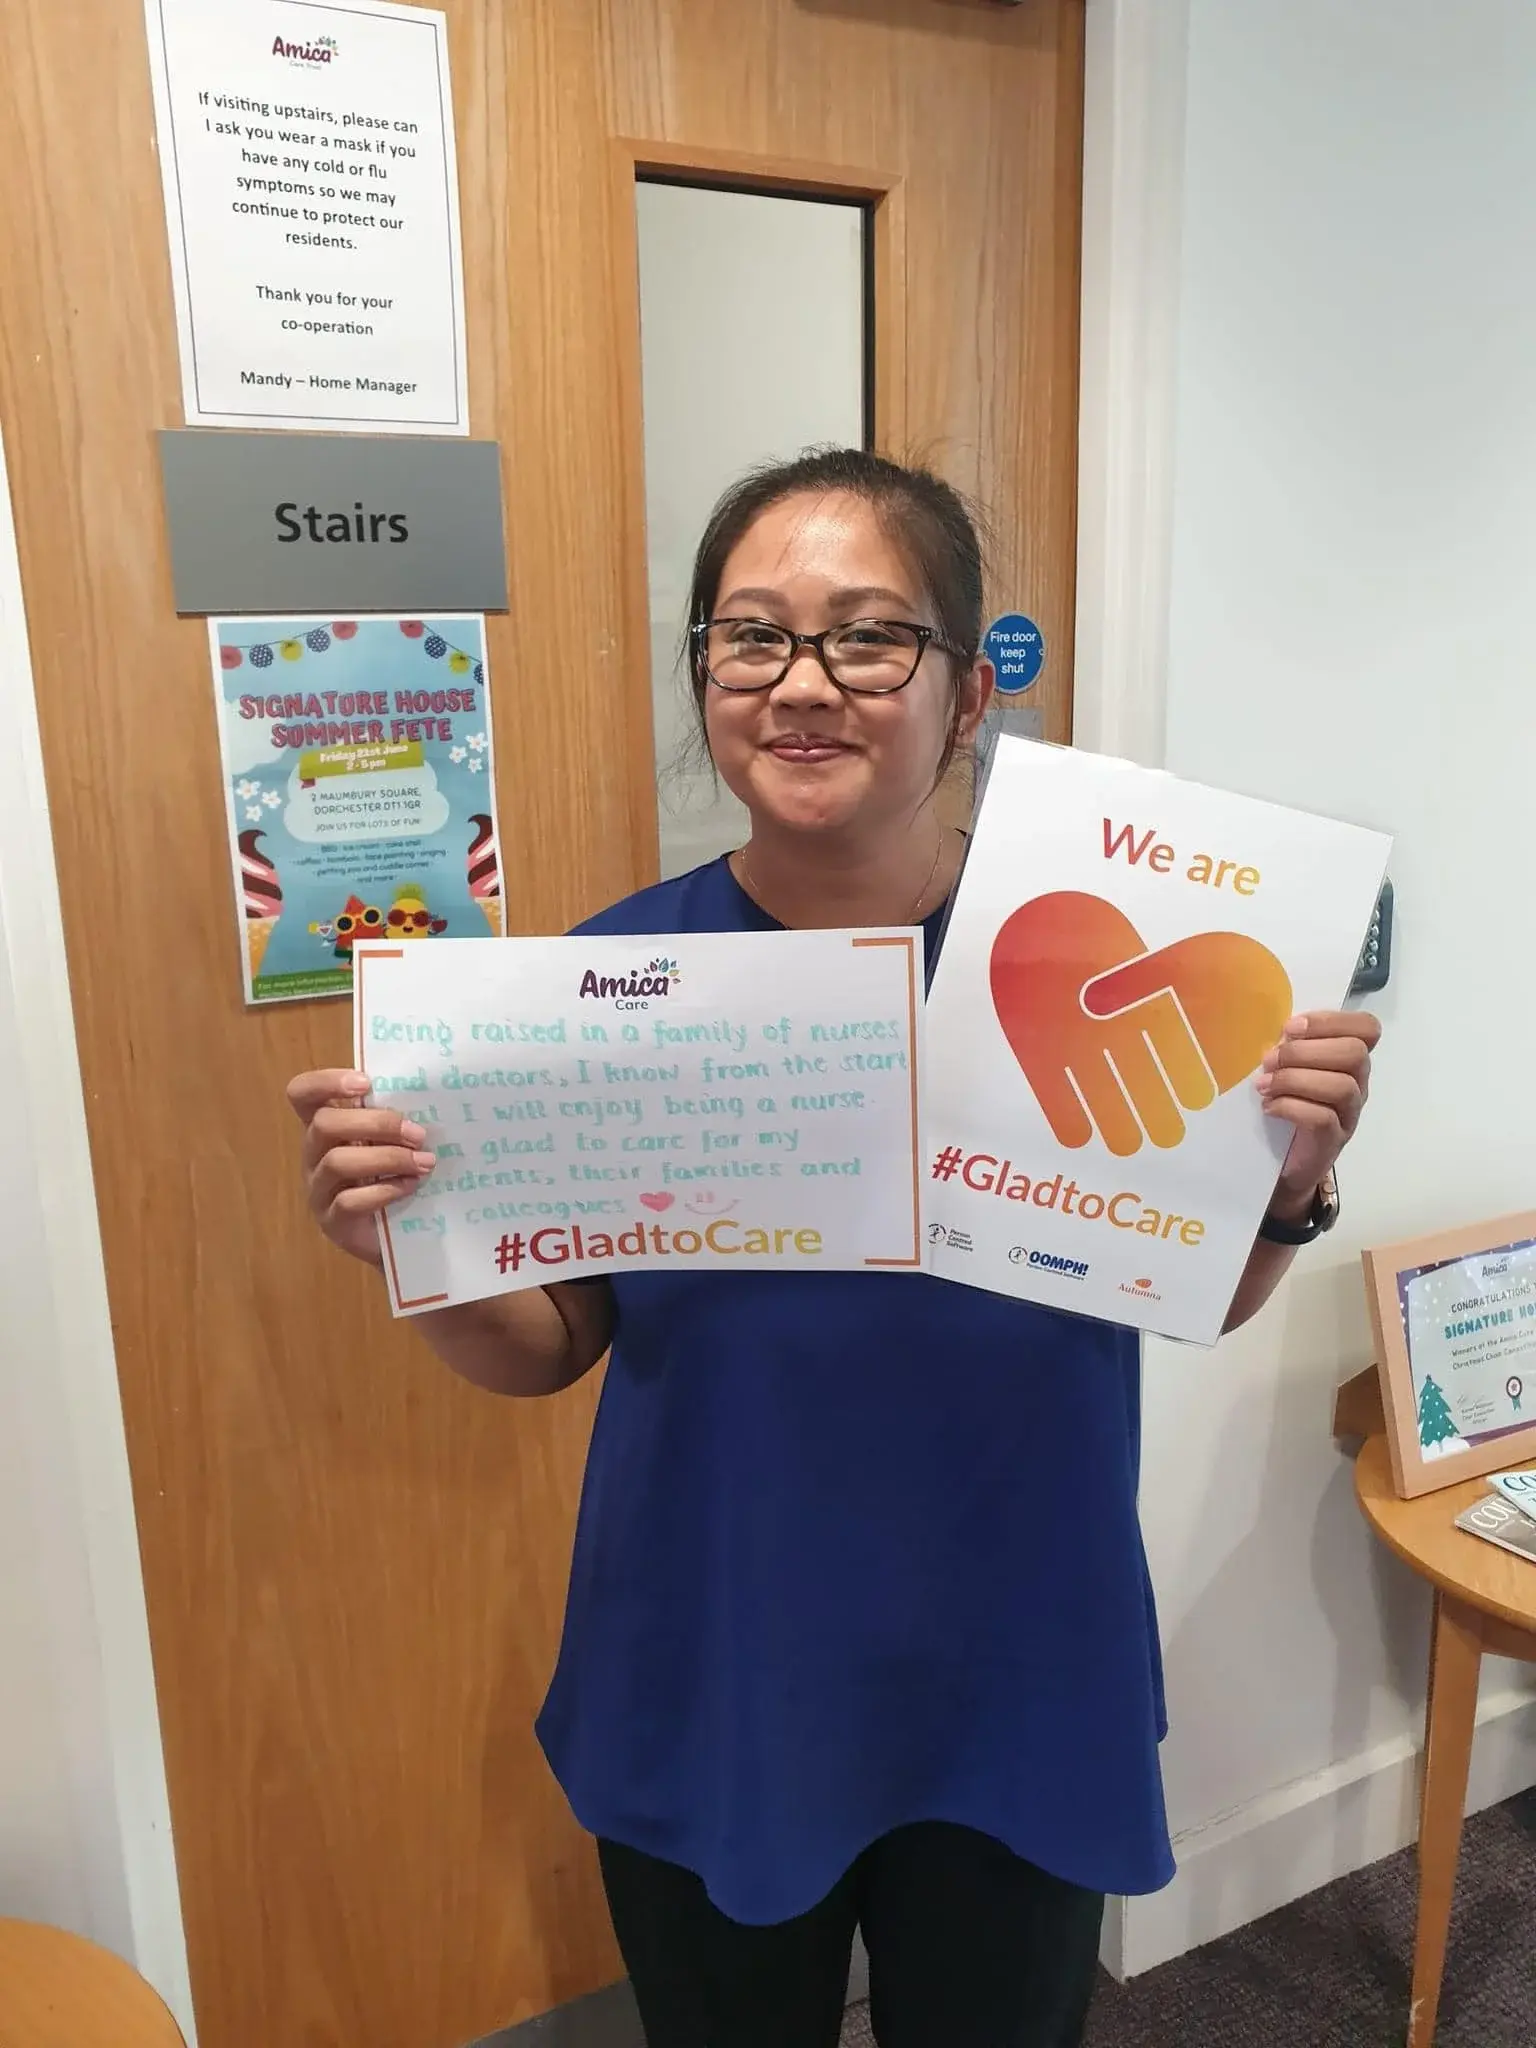 Amica
Care Trust
If visiting upstairs, please can
I ask you wear a mask if you
have any cold or flu
symptoms so we may
continue to protect our
residents.
Thank you for your
co-operation
Mandy – Home Manager
Stairs
SIGNATURE HOUSE
SUMMER FETE
Friday 21st June
2 - 5 pm
2 MAUMBURY SQUARE,
DORCHESTER DT1 1GR
JOIN US FOR LOTS OF FUN!
BBQ - ice cream - cake stall
- raffles - tombola - face painting - singing
- petting zoo and cuddle corner -
and more -
For more information
Fire door
keep
shut
Amica
Care
Being raised in a family of nurses
and doctors, I know from the start
I will enjoy being a nurse.
glad to care for my
their families and
my colleagues
#GladtoCare
We are
#GladtoCare
Person
Centred
Software
OOMPH!
Person Centred Software
Autumna
Amica
CONGRATULATIONS
SIGNATURE
Winners of the Amica
Christmas